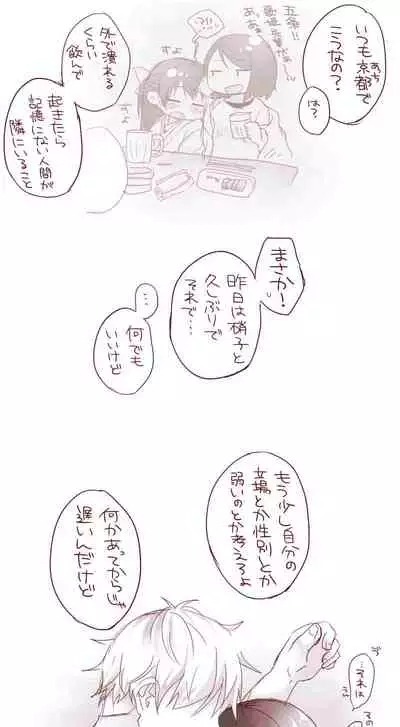 いつも京都で
あっち
こうなの?
は?
外で潰れる
くらい
飲んで
起きたら
記憶にない人間が
隣にいること
五条!!
?!!
すよ
すよ
まさか!
昨日は硝子と
久しぶりで
それで…
…
何でも
いいけど
もう少し自分の
立場とか性別とか
弱いのとか考えろよ
何かあってからじゃ
遅いんだけど
…それは